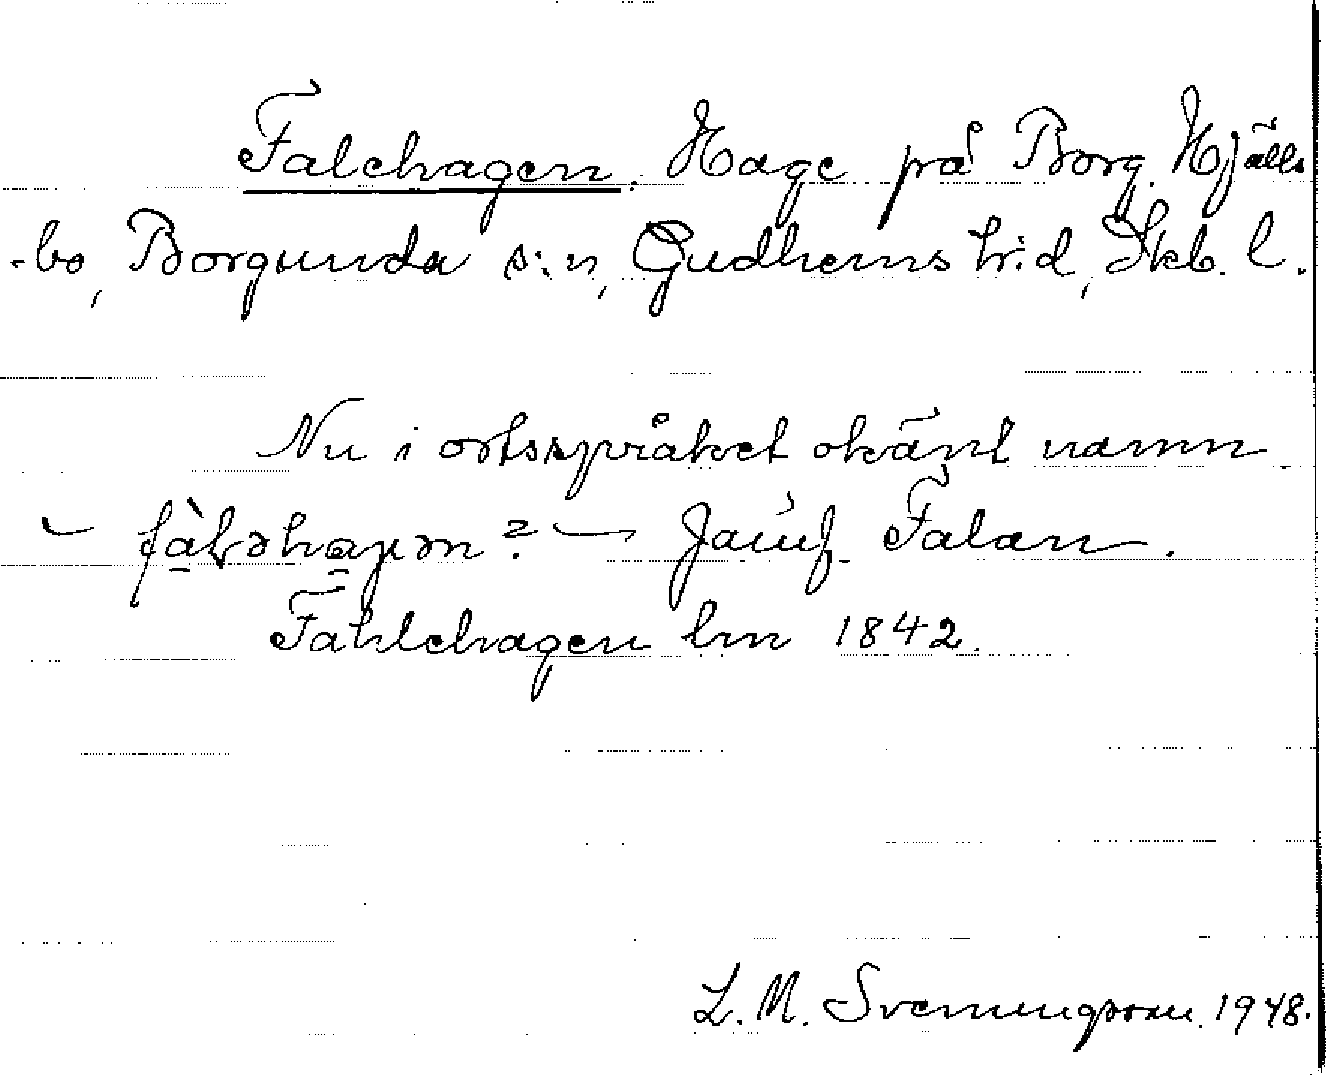 Falehagen. Hage på Borg. Hjälls
-bo, Borgunda s:n, Gudhems h:d, Skb. l.
Nu i ortsspråket okänt namn
– ? – Jämf. Falan.
Fahlehagen lm 1842.
L. M. Svenungsson. 1948.